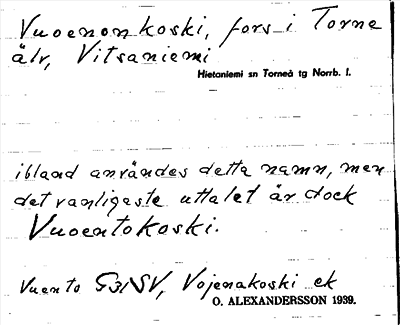 Vuoenonkoski, fors i Torne
älv, Vitsaniemi
Hietaniemi sn Torneå tg Norrb. l.
ibland användes detta namn, men
det vanligaste uttalet är dock
Vuoentokoski.
Vuento G31SV, Vojenakoski ek
O. ALEXANDERSSON 1939.